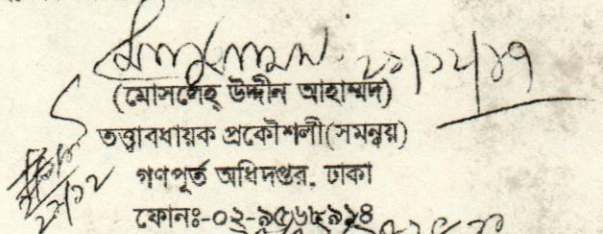 ২১/১২/১৭
(মোসলেহ্ উদ্দীন আহাম্মদ)
তত্ত্বাবধায়ক প্রকৌশলী(সমন্বয়)
গণপূর্ত অধিদপ্তর, ঢাকা
ফোনঃ-০২-৯৫৬৮৯১৪